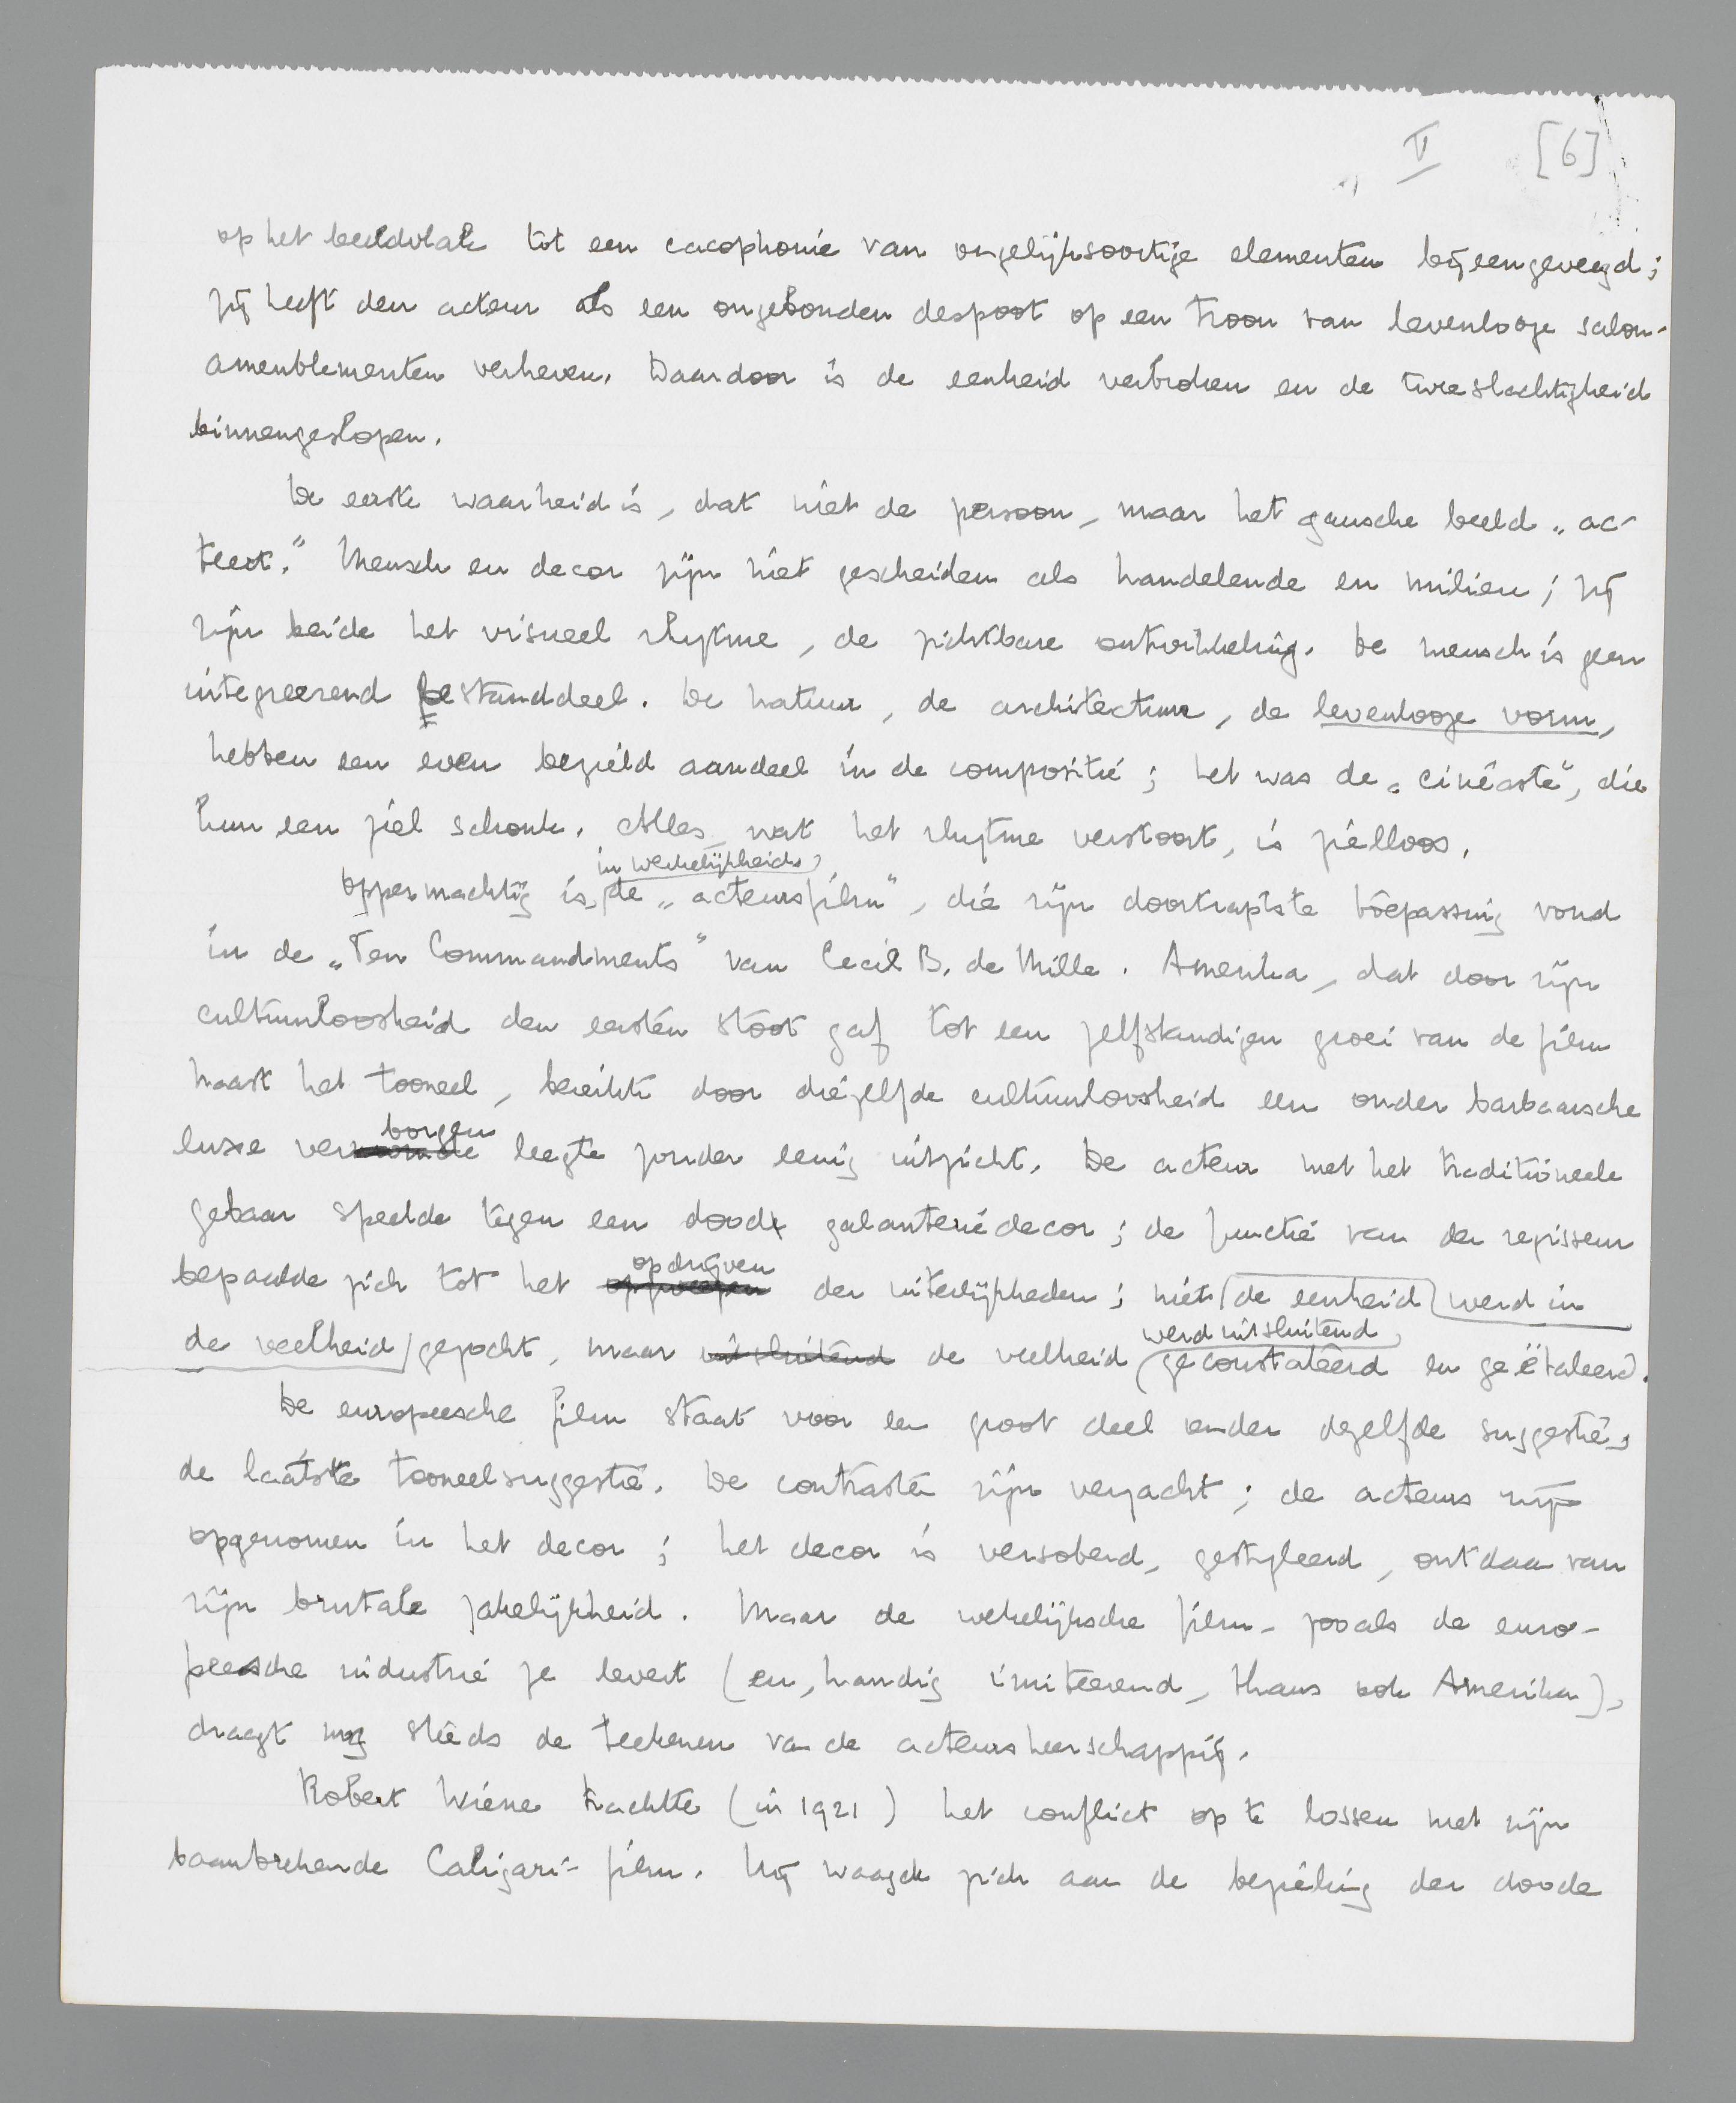 V [6]
op het beeldvlak tot een cacophonie van ongelijksoortige elementen bijeengeveegd;
zij heeft den acteur als een ongebonden despoot op een troon van levenlooze salon-
ameublementen verheven. Daardoor is de eenheid verbroken en de tweeslachtigheid
binnengeslopen.
De eerste waarheid is, dat niet de persoon, maar het gansche beeld „ac-
teert." Mensch en decor zijn niet gescheiden als handelende en milieu; zij
zijn beide het visueel rhytme, de zichtbare ontwikkeling. De mensch is geen
integreerend bestanddeel. De natuur, de architectuur, de levenlooze vorm,
hebben een even bezield aandeel in de compositie; het was de „cinéaste", die
hun een ziel schonk. Alles, wat het rhytme verstoort, is zielloos.
in werkelijkheid
Oppermachtig is de „acteursfilm", die zijn doortrapste toepassing vond
in de „Ten Commandments" van Cecil B. de Mille. Amerika, dat door zijn
cultuurloosheid den eersten stoot gaf tot een zelfstandigen groei van de film
naast het tooneel, bereikte door diezelfde cultuurloosheid een onder barbaarsche
borgen
luxe ver leegte zonder eenig uitzicht. De acteur met het traditioneele
gebaar speelde tegen een dood galanteriedecor; de functie van den regisseur
opdrijven
bepaalde zich tot het opzweepen der uiterlijkheden; niet de eenheid werd in
werd uitsluitend
de veelheid gezocht, maar uitsluitend de veelheid geconstateerd en geëtaleerd.
De europeesche film staat voor een groot deel onder dezelfde suggestie,
de laatste tooneelsuggestie. De contrasten zijn verzacht; de acteurs zijn
opgenomen in het decor; het decor is versoberd, gestyleerd, ontdaan van
zijn brutale zakelijkheid. Maar de wekelijksche film, zooals de euro-
peesche industrie ze levert (en, handig imiteerend, thans ook Amerika),
draagt nog steeds de teekenen van de acteursheerschappij.
Robert Wiene trachtte (in 1921) het conflict op te lossen met zijn
baanbrekende Caligari-film. Hij waagde zich aan de bezieling der doode